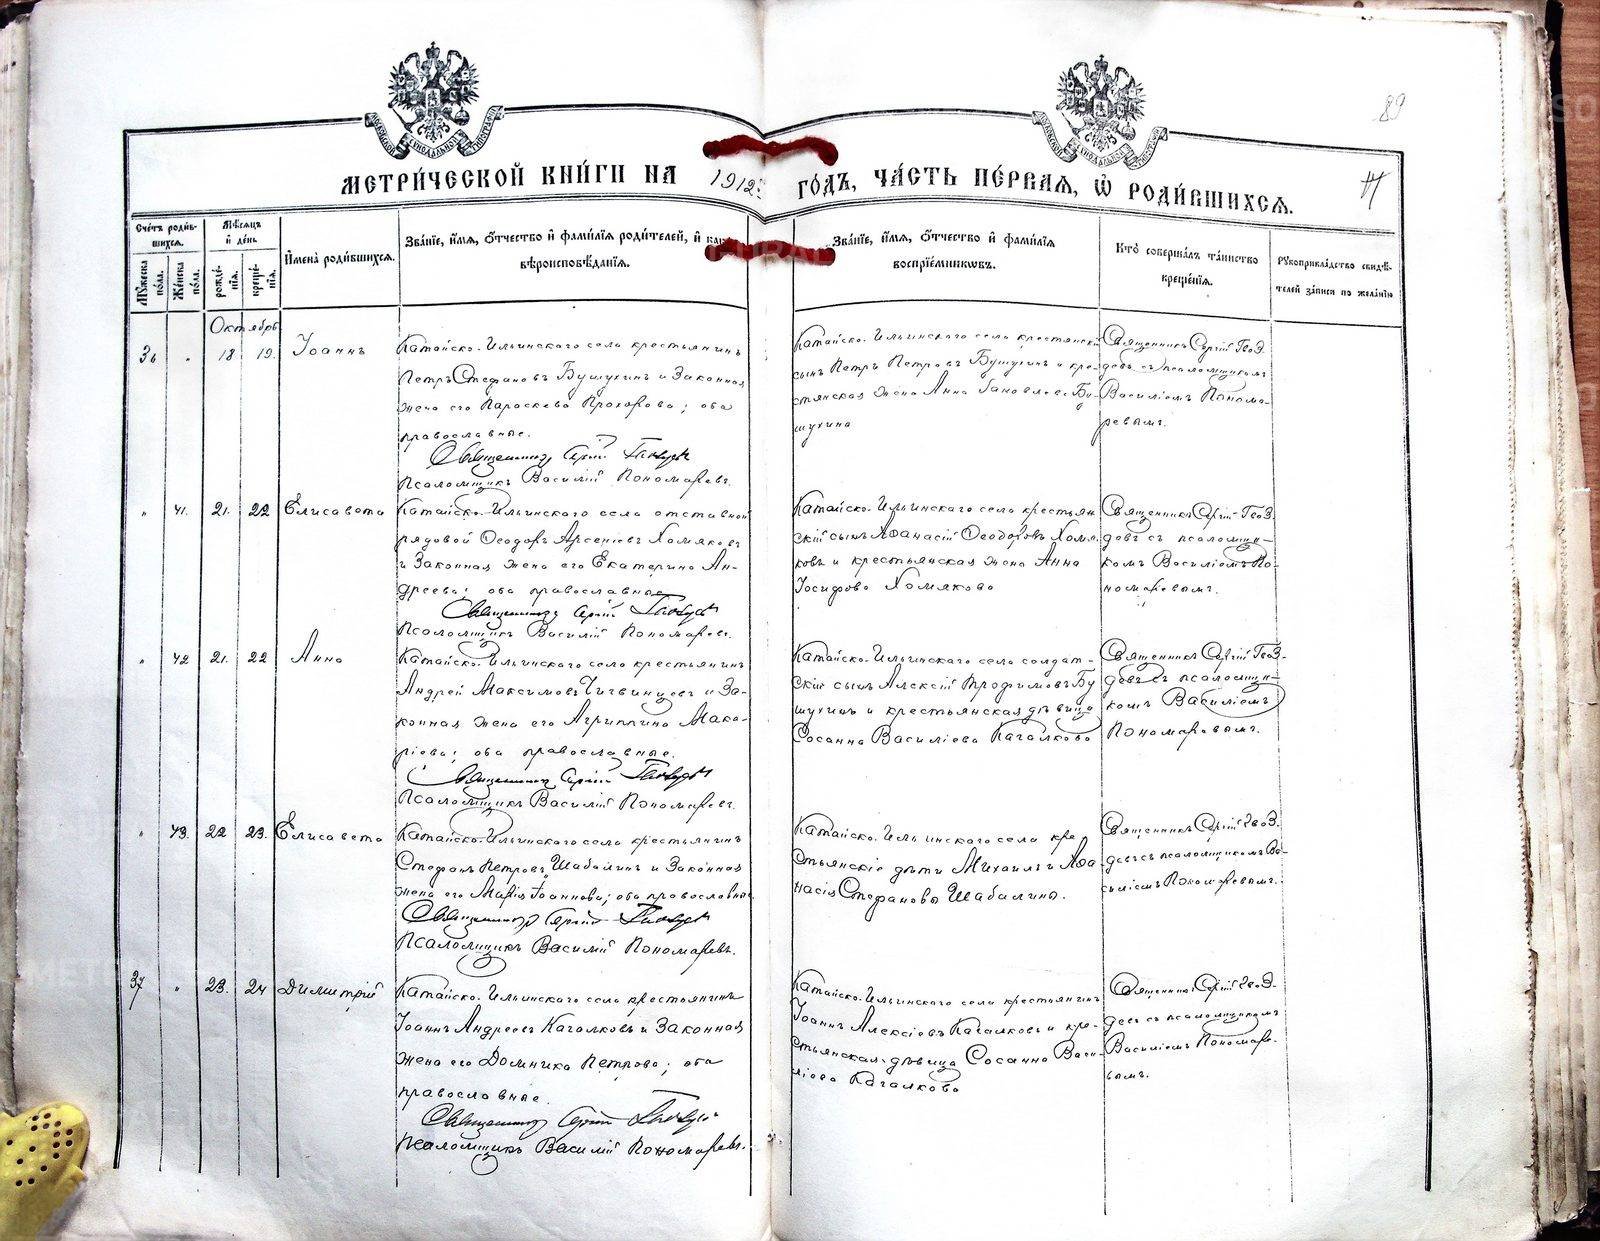 89
МЕТРИ́ЧЕСКОЙ КНИ́ГИ НА 1912й ГО́ДЪ, ЧА́СТЬ ПЕ́РВАЯ, Ѽ РОДИ́ВШИХСЯ.
Сче́тъ роди́вшихся.
Му́жеска по́ла.
Же́нска по́ла.
Мѣ́сяцъ и҆ де́нь
рожде́нїя.
креще́нїя.
И҆мена̀ роди́вшихся.
Зва́нїе, и҆́мя, ѻ҆́тчество и҆ фами́лїя роди́телей, и҆
вѣроисповѣ́данїя.
Зва́нїе, и҆́мя, ѻ҆́тчество и҆ фами́лїя
воспрїе́мниковъ.
Кто̀ соверша́лъ та́инство
креще́нїя.
Рукоприкла́дство свидѣ́-
телей за́писи по жела́нїю
Октябрь
36 „ 18 19. Іоаннъ
Катайско-Ильинскаго села крестьянинъ
Петръ Стефановъ Бушухинъ и законная
жена его Параскева Прохорова; оба
православные.
Священникъ Сергій Гвоздевъ
Псаломщикъ Василій Пономаревъ.
Катайско-Ильинскаго села крестьянскій
сынъ Петръ Петровъ Бушухинъ и кре-
стьянская жена Анна Бу-
шухина
Священникъ Сергій Гвоз-
девъ съ псаломщикомъ
Василіемъ Понома-
ревымъ.
„ 41. 21. 22 Елисавета
Катайско-Ильинскаго села отставной
рядовой Ѳеодоръ Арсеніевъ Хомяковъ
и законная жена его Екатерина Ан-
дреева; оба православные
Священникъ Сергій Гвоздевъ
Псаломщикъ Василій Пономаревъ.
Катайско-Ильинскаго села крестьян
скій сынъ Аѳанасій Ѳеодоровъ Хомя
ковъ и крестьянская жена Анна
Іосифова Хомякова
Священникъ Сергій Гвоз-
девъ съ псаломщи-
комъ Василіемъ По-
номаревымъ.
„ 42 21. 22 Анна
Катайско-Ильинскаго села крестьянинъ
Андрей Максимовъ Чигвинцевъ и за-
конная жена его Агриппина Мака-
ріева; оба православные.
Священникъ Сергій Гвоздевъ
Псаломщикъ Василій Пономаревъ.
Катайско-Ильинскаго села солдат-
скій сынъ Алексій Трофимовъ Бу
шухинъ и крестьянская дѣвица
Сосанна Василіева Кагалкова
Священникъ Сергій Гвоз-
девъ съ псаломщи-
комъ Василіемъ
Пономаревымъ.
„ 43. 22 23. Елисавета
Катайско-Ильинскаго села крестьянинъ
Стефанъ Петровъ Шабалинъ и законная
жена его Марія Іоаннова; оба православные
Священникъ Сергій Гвоздевъ
Псаломщикъ Василій Пономаревъ.
Катайско-Ильинскаго села кре
стьянскіе дѣти Михаилъ и Аѳа
насія Стефановы Шабалины.
Священникъ Сергій Гвоз-
девъ съ псаломщикомъ Ва-
силіемъ Пономаревымъ.
37 „ 23. 24 Димитрій
Катайско-Ильинскаго села крестьянинъ
Іоаннъ Андреевъ Кагалковъ и законная
жена его Домника Петрова; оба
православные.
Священникъ Сергій Гвоздевъ
Псаломщикъ Василій Пономаревъ.
Катайско-Ильинскаго села крестьянинъ
Іоаннъ Алексіевъ Кагалковъ и кре-
стьянская дѣвица Сосанна Васи-
ліева Кагалкова
Священникъ Сергій Гвоз-
девъ съ псаломщикомъ
Василіемъ Пономаре-
вымъ.